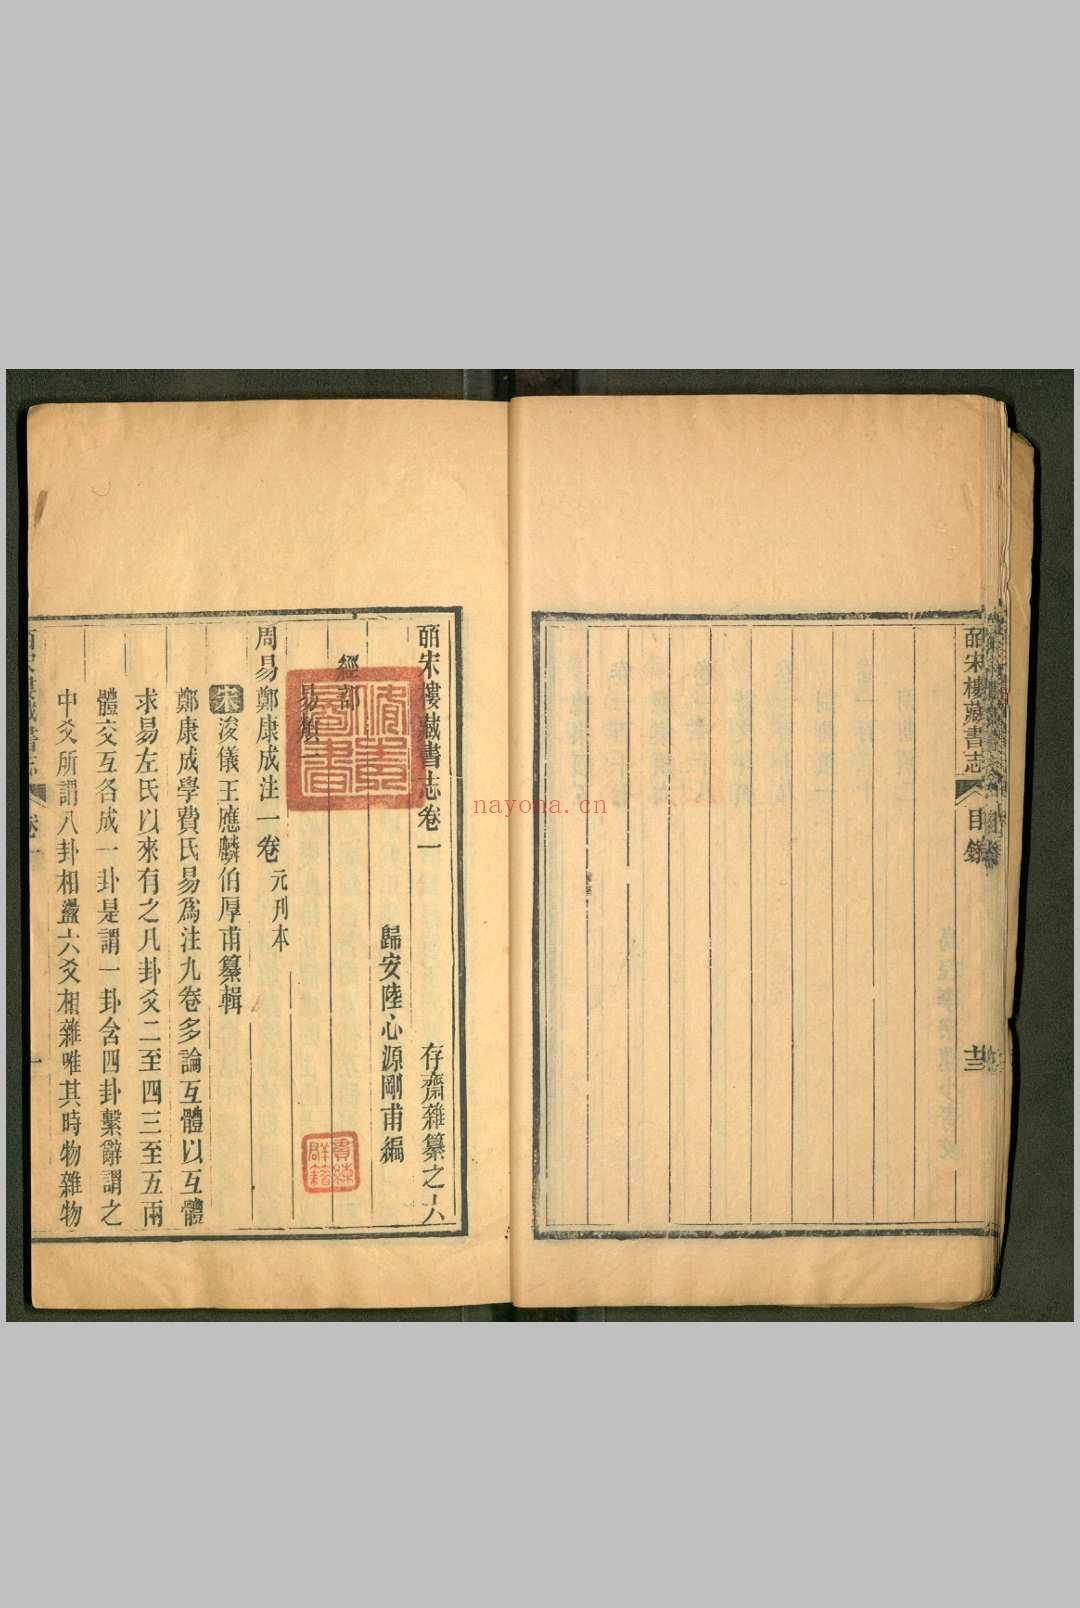 皕宋樓藏書志
目錄
皕宋樓藏書志卷一
存齋雜纂之六
歸安陸心源剛甫編
經部
易類一
周易鄭康成注一卷 元刊本
宋浚儀王應麟伯厚甫纂輯
鄭康成學費氏易爲注九卷多論互體以互體
求易左氏以來有之凡卦爻二至四三至五兩
體交互各成一卦是謂一卦含四卦繫辭謂之
中爻所謂八卦相盪六爻相雜唯其時物雜物
卷一
一
nayona.cn